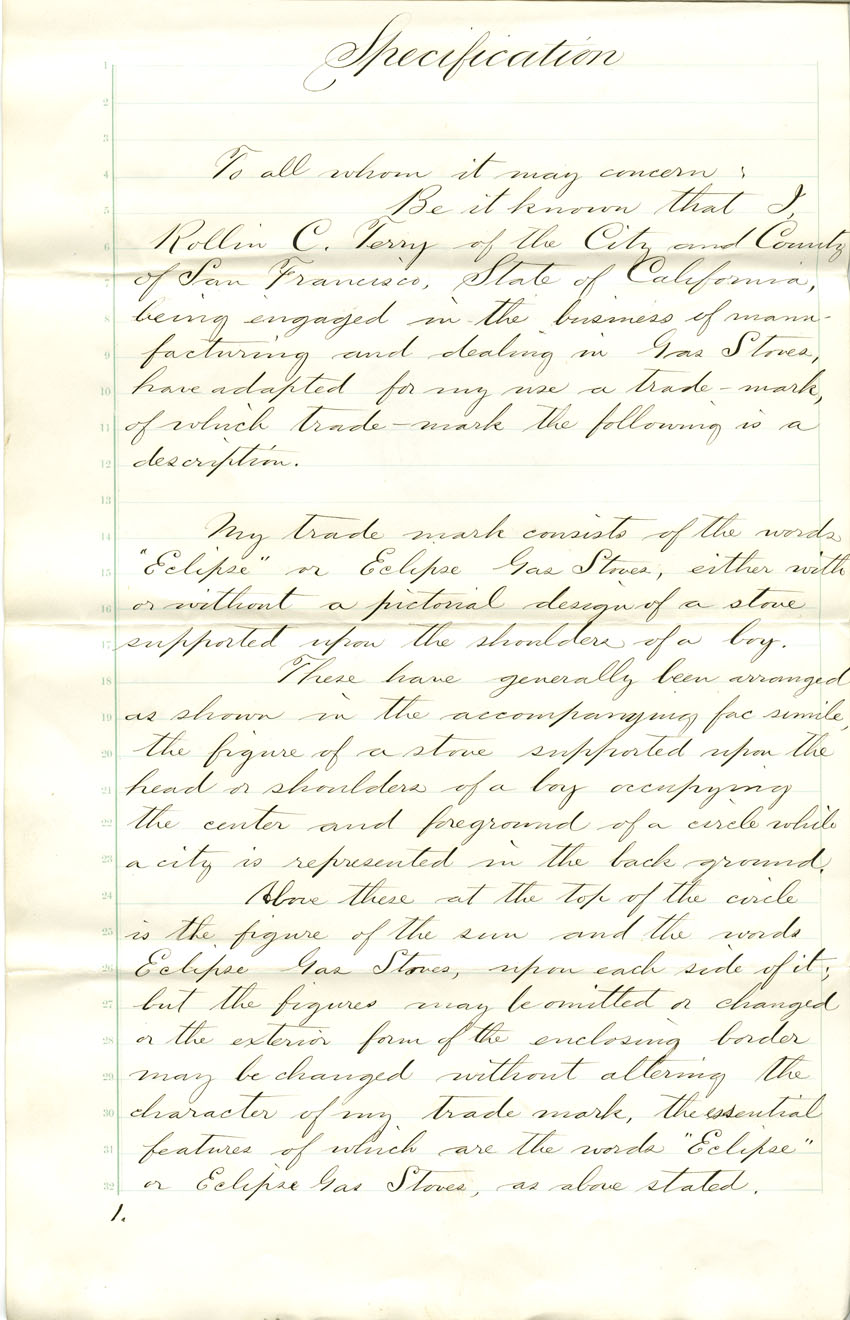 Specification
To all whom it may concern :
Be it known that I,
Rollin C. Terry of the City and County
of San Francisco, State of California,
being engaged in the business of manu-
facturing and dealing in Gas Stoves,
have adapted for my use a trade-mark,
of which trade-mark the following is a
description.
My trade mark consists of the words
"Eclipse" or Eclipse Gas Stoves, either with
or without a pictorial design of a stove
supported upon the shoulders of a boy.
These have generally been arranged
as shown in the accompanying fac simile,
the figure of a stove supported upon the
head or shoulders of a boy occupying
the center and foreground of a circle while
a city is represented in the back ground.
Above these at the top of the circle
is the figure of the sun and the words
Eclipse Gas Stoves, upon each side of it;
but the figures may be omitted or changed
or the exterior form of the enclosing border
may be changed without altering the
character of my trade mark, the essential
features of which are the words "Eclipse"
or Eclipse Gas Stoves, as above stated.
1.